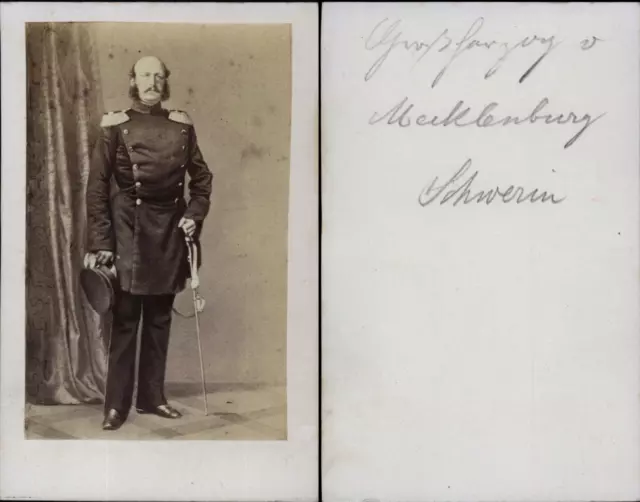 Großherzog v
Mecklenburg
Schwerin